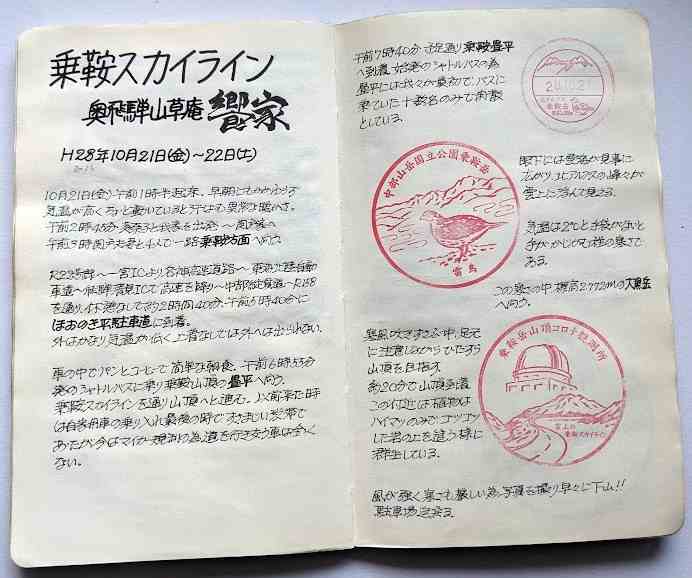 乗鞍スカイライン
奥飛騨山草庵 饗家
H28年10月21日(金)～22日(土)
10月21日(金)午前1時半起床、早朝にもかかわらず
気温が高くちょっと動いていると汗ばむ異常な暖かさ。
午前2時45分
午前3時 一路乗鞍方面へ向う。
～一宮ICより各神高速道路～東海北陸自動
車道～飛騨清見ICで高速を降り～中部縦貫道～R158
を通り 約2時間40分、午前5時40分に
ほおのき平駐車場に到着。
外はかなり気温が低く上着なしでは外へは出られない。
車の中でパンとコーヒーで簡単な朝食、午前6時55分
発のシャトルバスに乗り乗鞍山頂の畳平へ向う。
乗鞍スカイラインを通り山頂へと進む。以前来た時
は自家用車の乗り入れ最後の時ですさまじい渋滞で
あったが今はマイカー規制の為道を行き交う車は全く
ない。
午前7時40分 予定通り乗鞍畳平
へ到着 始発のシャトルバスの為
畳平には我々が最初で、バスに
乗ていた十数名のみで閑散
としている。
中部山岳国立公園乗鞍岳
雷鳥
眼下には雲海が見事に
広がり北アルプスの峰々が
雲上に浮んで見える。
気温は2℃と手袋がないと
手がかじかむ程の寒さで
ある。
この寒さの中 標高2,772mの大黒岳
へ向う。
寒風吹きすさぶ中、足元
に注意しながらひたすら
山頂を目指す
約20分で山頂到着
この付近は植物は
ハイマツのみでゴツゴツ
した岩の上を這う様に
群生している。
乗鞍岳山頂コロナ観測所
雲上の
乗鞍スカイライン
風が強く寒さも厳しい為、写真を撮り早々に下山!!
駐車場